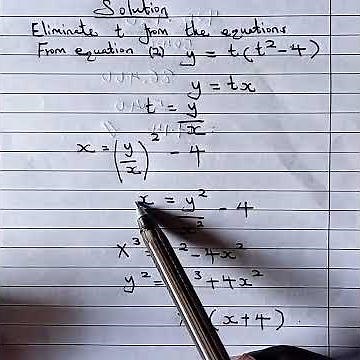 Solution
Eliminate t from the equations
From equation (2) y = t(t² - 4)
y = tx
t = y/x
x = (y/x)² - 4
x = y²/x² - 4
x³ = ² - 4x²
y² = ³ + 4x²
(x + 4)